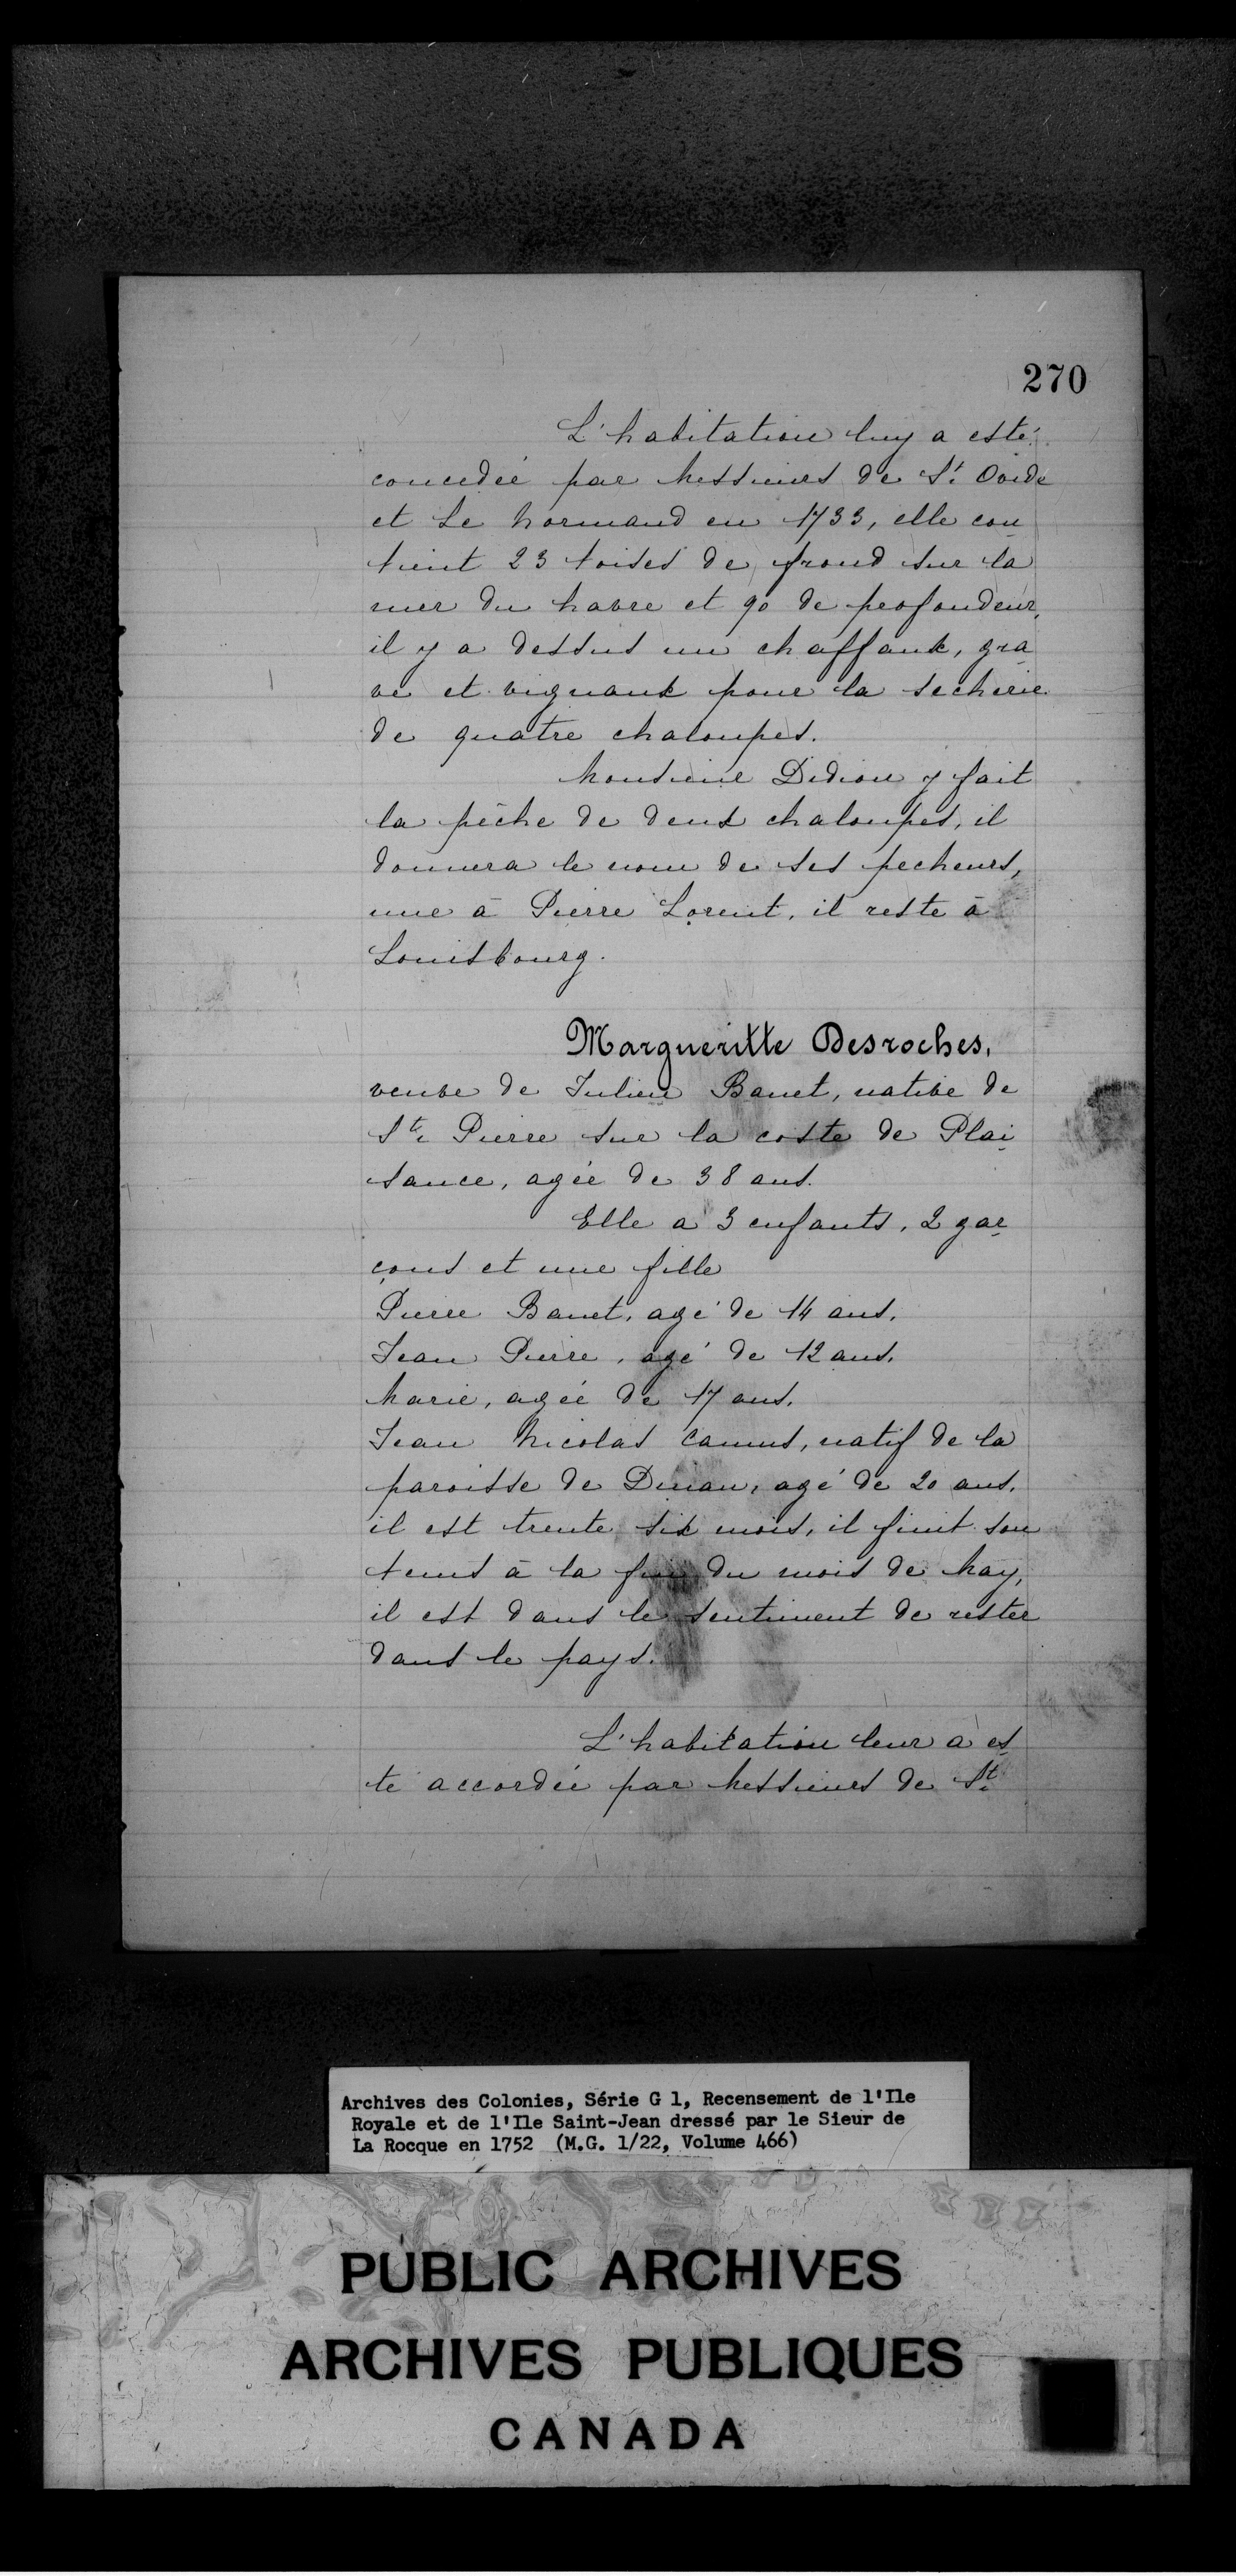 270
L'habitation luy a esté
concedée par Messieurs de St. Ovide
et Le Normand en 1733, elle con
tient 23 toises de frond sur la
mer du havre et 90 de profondeur,
il y a dessus un chaffaut, gra
ve et vignaut pour la secherie
de quatre chaloupes.
Monsieur Didion y fait
la pêche de deux chaloupes, il
donnera le nom de ses pecheurs,
une à Pierre Lorent, il reste à
Louisbourg.
Margueritte Desroches,
veuve de Julien Banet, native de
St. Pierre sur la coste de Plai
sance, agée de 38 ans.
Elle a 3 enfants, 2 gar
çons et une fille
Pierre Banet, agé de 14 ans.
Jean Pierre, agé de 12 ans.
Marie, agée de 17 ans.
Jean Nicolas Camus, natif de la
paroisse de Dinan, agé de 20 ans.
il est trente six mois, il finit son
tems à la fin du mois de May,
il est dans le sentiment de rester
dans le pays.
L'habitation leur a es
té accordée par Messieurs de St.
Archives des Colonies, Série G 1, Recensement de l'Ile
Royale et de l'Ile Saint-Jean dressé par le Sieur de
La Rocque en 1752 (M.G. 1/22, Volume 466)
PUBLIC ARCHIVES
ARCHIVES PUBLIQUES
CANADA